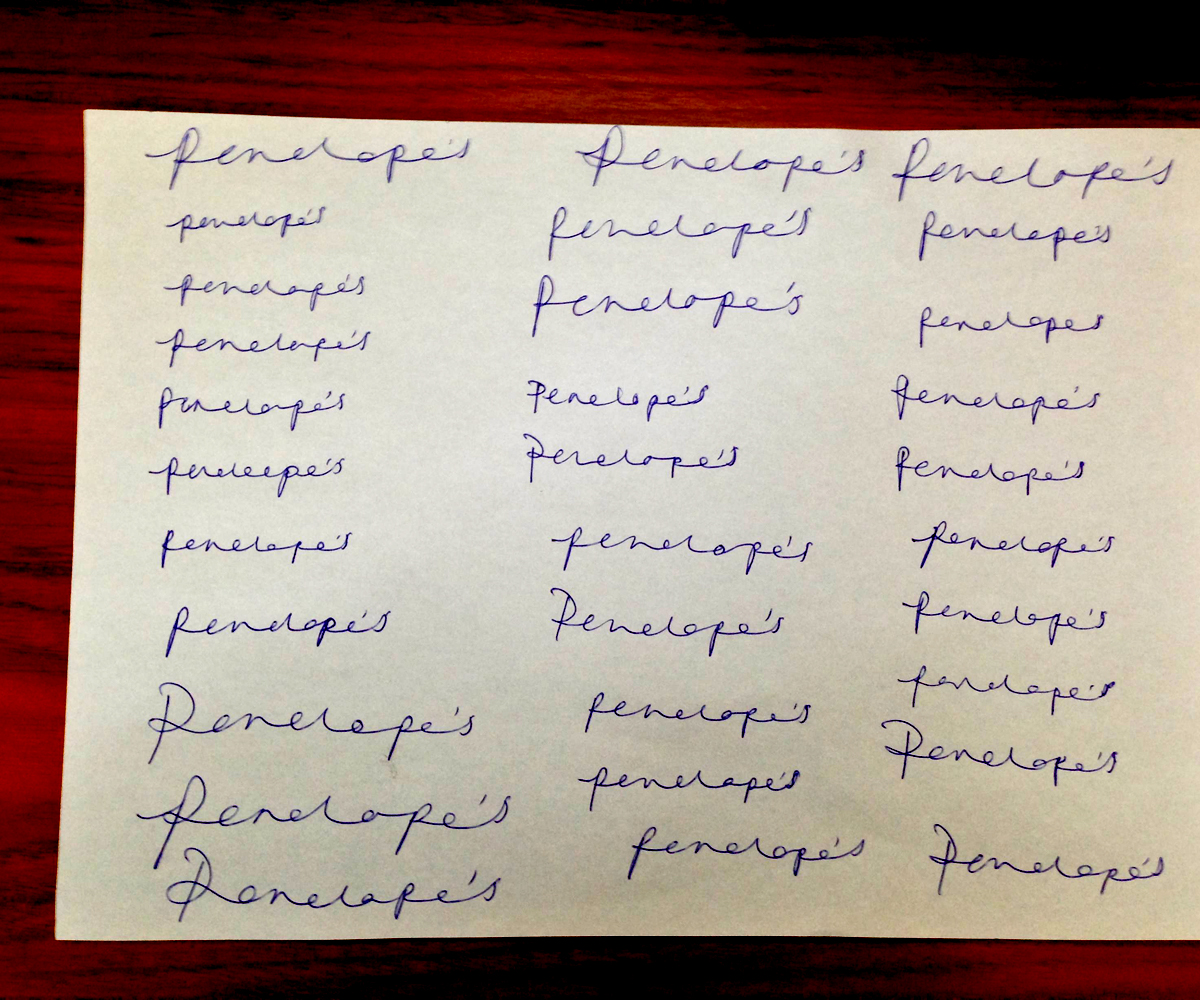 Penelope's Penelope's Penelope's
penelope's penelope's penelope's
penelope's Penelope's penelopes
penelope's Penelope's penelope's
penelope's Penelope's penelope's
penelope's penelope's penelope's
penelope's Penelope's penelope's
penelope's penelope's penelope's
Penelope's penelope's Penelope's
Penelope's penelope's Penelope's
Penelope's